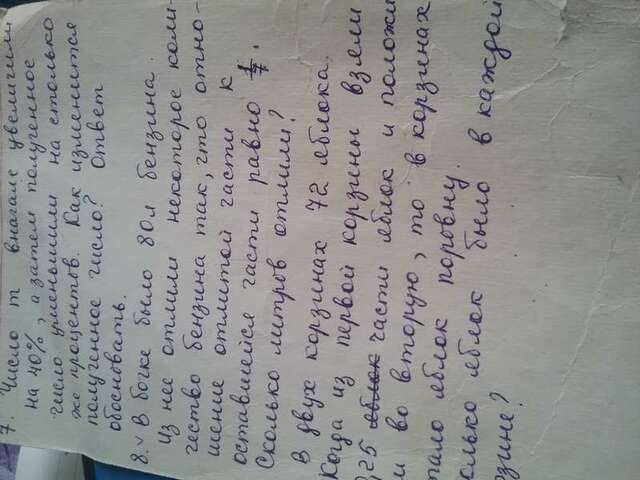 7. Число m вначале увеличили
на 40%, а затем полученное
число уменьшили на столько
же процентов. Как изменится
полученное число? Ответ
обосновать.
8. В бочке было 80л бензина.
Из нее отлили некоторое коли-
чество бензина так, что отно-
шение отлитой части к
оставшейся части равно 1/7.
Сколько литров отлили?
В двух корзинах 72 яблока.
Когда из первой корзины взяли
,25 яблок части яблок и положи
и во вторую, то в корзинах
тало яблок поровну.
олько яблок было в каждой
рзине?